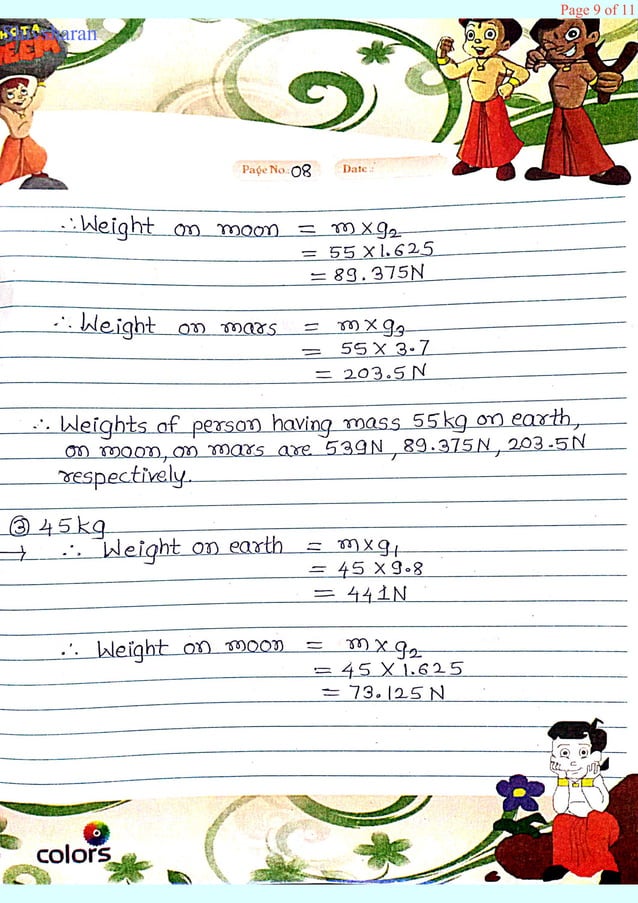 Page 9 of 11
HOTA
HEEM
Page No.: 08 Date :
∴ Weight on moon = m × g₂
= 55 × 1.625
= 89.375N
∴ Weight on mars = m × g₃
= 55 × 3.7
= 203.5N
∴ Weights of person having mass 55kg on earth,
on moon, on mars are 539N, 89.375N, 203.5N
respectively.
③ 45kg
→ ∴ Weight on earth = m × g₁
= 45 × 9.8
= 441N
∴ Weight on moon = m × g₂
= 45 × 1.625
= 73.125 N
colors